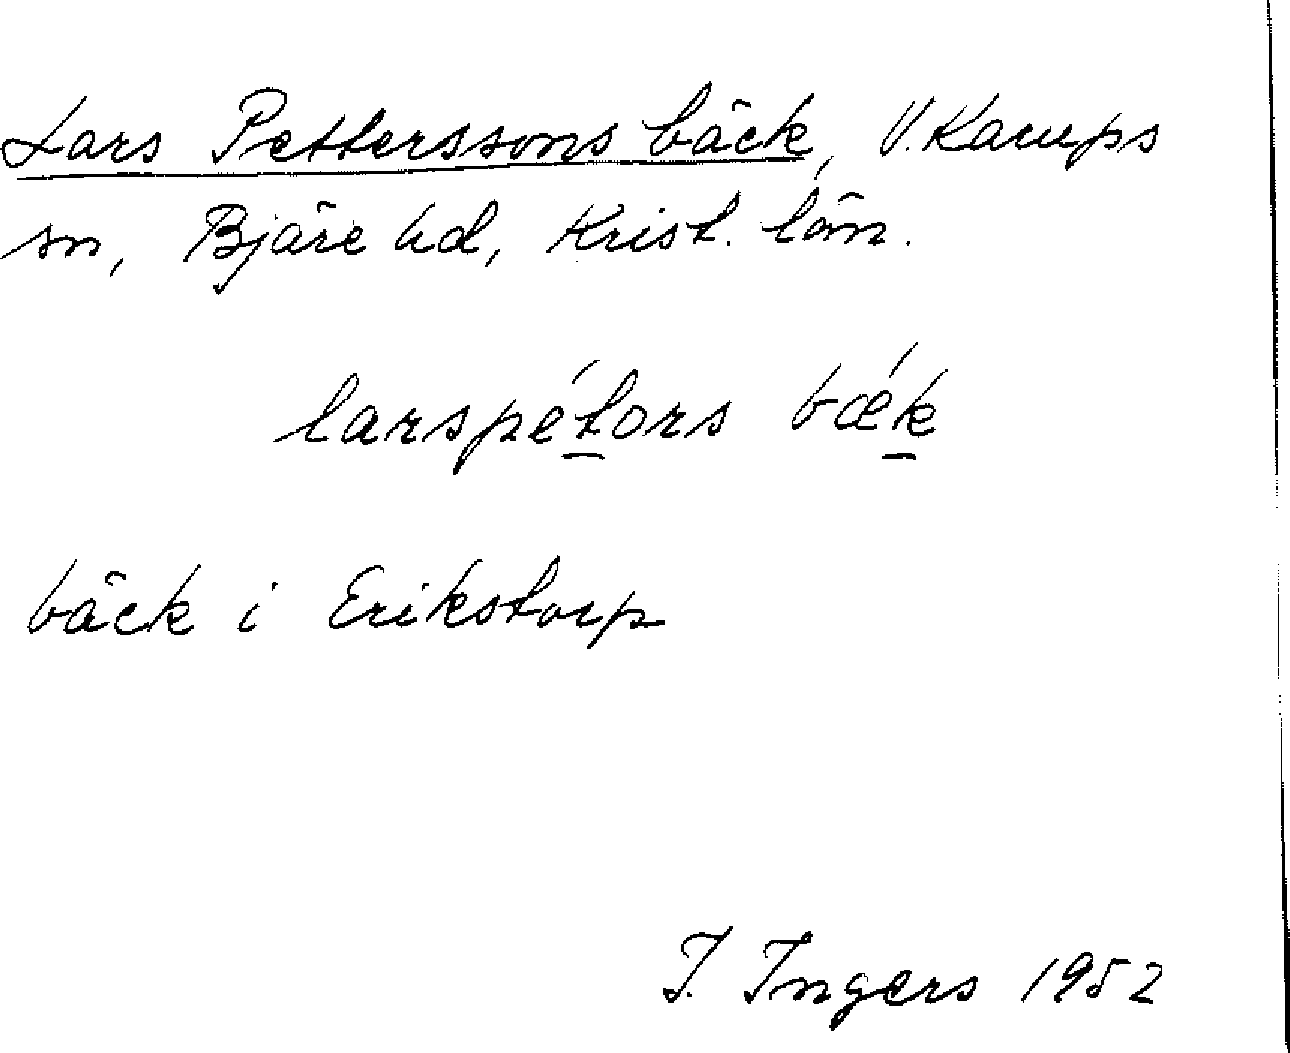 Lars Petterssons bäck, V. Karups
sn, Bjäre hd, Krist. län.
larspétors bǽk
bäck i Erikstorp
I. Ingers 1952